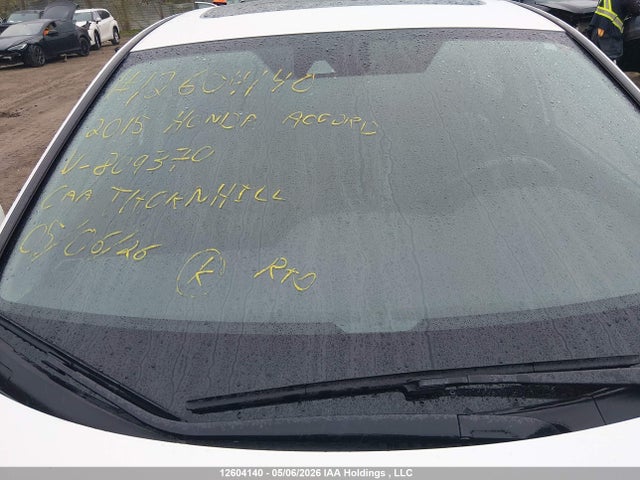 #12604140
2015 HONDA ACCORD
V-809370
CAA THORNHILL
05/06/26
K R+D
12604140 - 05/06/2026 IAA Holdings , LLC